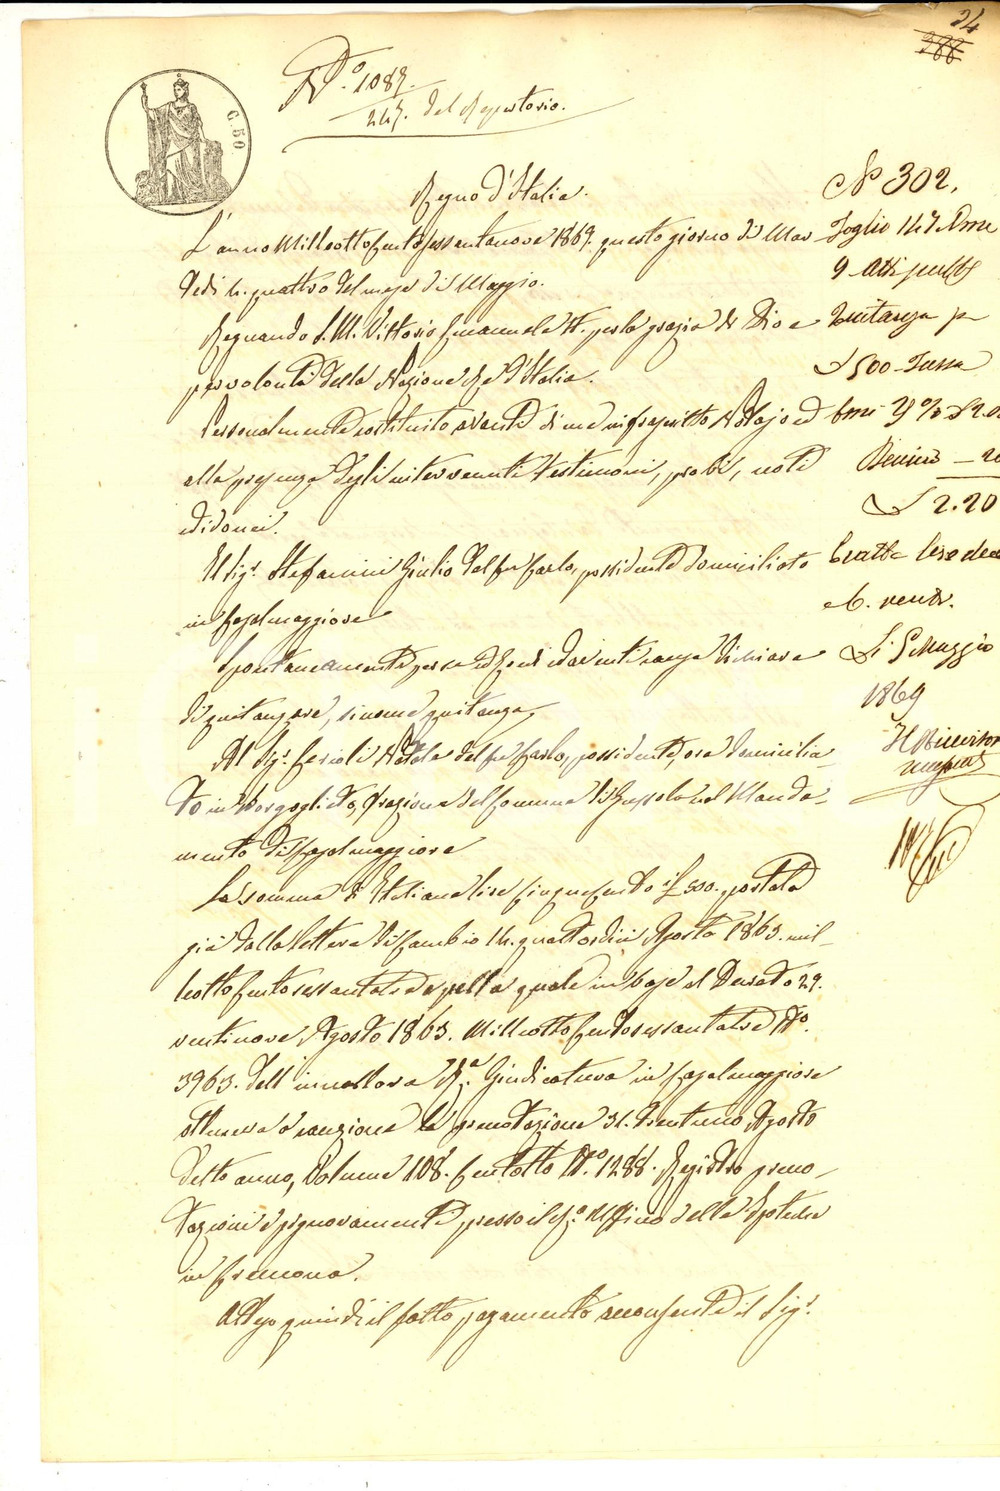 24
388
C. 50
N.° 1087.
247. del Repertorio.
Regno d'Italia.
L'anno Milleottocentosessantanove 1869. questo giorno di Mar-
tedì 4. quattro del mese di Maggio.
Regnando S. M. Vittorio Emanuele II. per la grazia di Dio e
per volontà della Nazione Re d'Italia.
Personalmente costituito avanti di me infrascritto Notajo ed
alla presenza degli intervenuti testimoni, probi, noti
ed idonei.
Il Sig.r Stefanini Giulio del fu Carlo, possidente domiciliato
in Casalmaggiore
Spontaneamente per se ed eredi ed aventi causa dichiara
di quitanzare, siccome quitanza
Al Sig.r Ferioli Natale del fu Carlo, possidente, ora domicilia-
to in Borgolieto, frazione del Comune di Gussola nel Manda-
mento di Casalmaggiore
La somma di Italiane lire Cinquecento £ 500. portata
già dalla lettera di Cambio 14. quattordici Agosto 1863. mil-
leottocentosessantatre per la quale in base al Decreto 29.
ventinove Agosto 1863. Milleottocentosessantatre N.°
3963. dell'in allora R.a Giudicatura in Casalmaggiore
otteneva a cauzione la prenotazione 31. trentuno Agosto
detto anno, Volume 108. Centotto N.° 1288. Registro preno-
tazioni e pignoramenti presso il R.° Ufficio delle Ipoteche
in Cremona.
Atteso quindi il fatto pagamento acconsente il Sig.r
N° 302.
Foglio 147 Vme
9 Atti pubb
Quitanza p
£ 500 - Tassa
£ 2.20
Esatte Lire due
e C. venti.
Li 5 Maggio
1869
Il Ricevitor